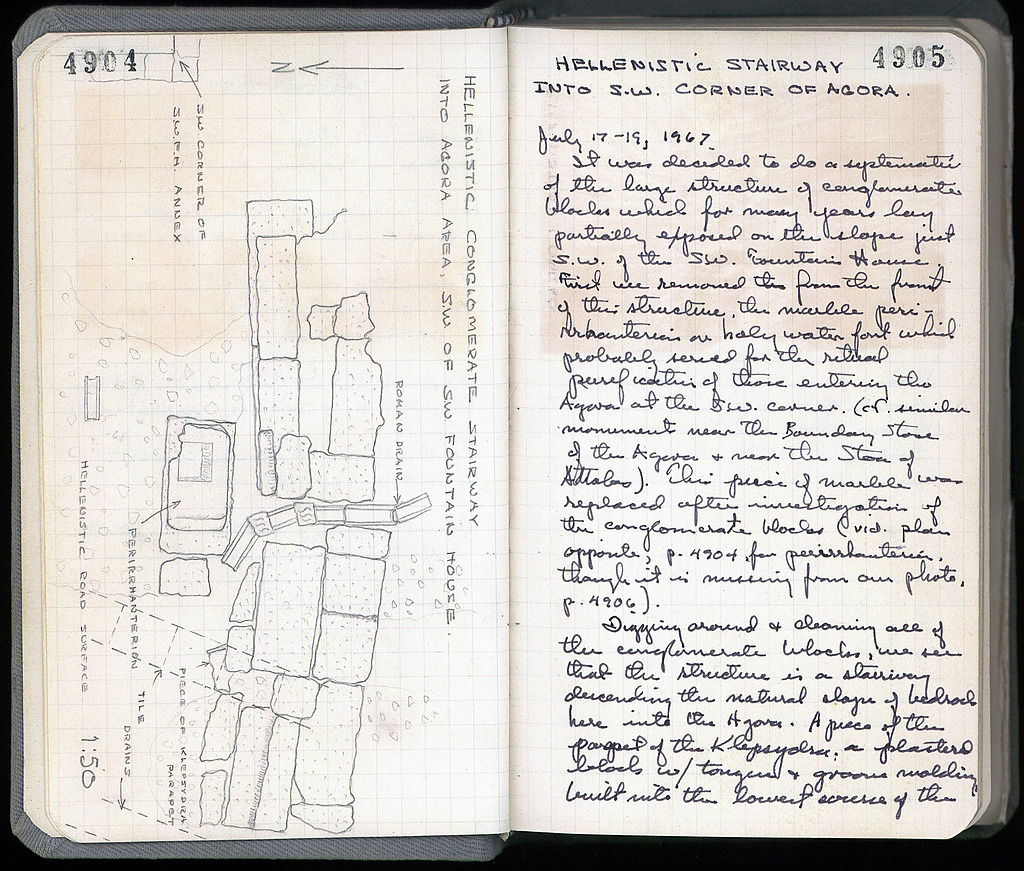 4904
N
HELLENISTIC CONGLOMERATE STAIRWAY
INTO AGORA AREA, S.W OF SW FOUNTAIN HOUSE.
SW CORNER OF
S.W.F.H. ANNEX
ROMAN DRAIN
PERIRRHANTERION
HELLENISTIC ROAD SURFACE
1:50
TILE
DRAINS
PIECE OF KLEPSYDRA
PARAPET
4905
HELLENISTIC STAIRWAY
INTO S.W. CORNER OF AGORA.
July 17-19, 1967
It was decided to do a systematic
of the large structure of conglomerate
blocks which for many years lay
partially exposed on the slope just
S.W. of the SW. Fountain House.
First we removed this from the front
of this structure, the marble peri-
rrhanterion or holy water font which
probably served for the ritual
purification of those entering the
Agora at the S.W. corner. (cf. similar
monument near the Boundary Stone
of the Agora + near the Stoa of
Attalos). This piece of marble was
replaced after investigation of
the conglomerate blocks (vid. plan
opposite, p. 4904 for perirrhanterion,
though it is missing from our photo,
p. 4906).
Digging around & cleaning all of
the conglomerate blocks, we see
that the structure is a stairway
descending the natural slope of bedrock
here into the Agora. A piece of the
parapet of the Klepsydra, a plastered
block w/ tongue & groove molding
built into the lowest course of the